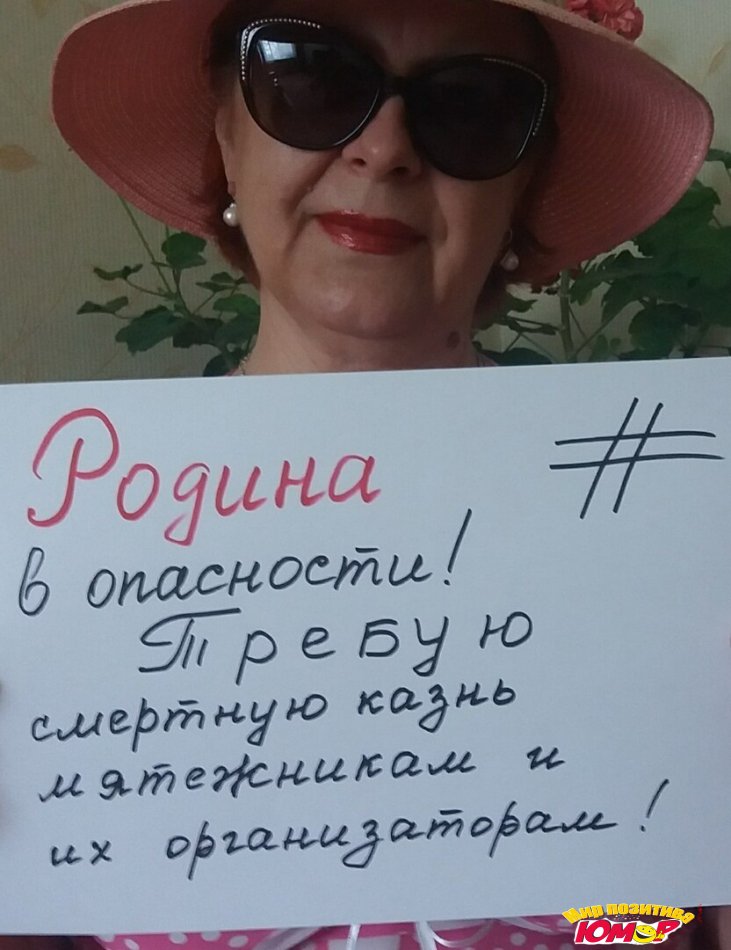 Родина #
в опасности!
Требую
смертную казнь
мятежникам и
их организаторам!
Мир позитива
ЮМОР